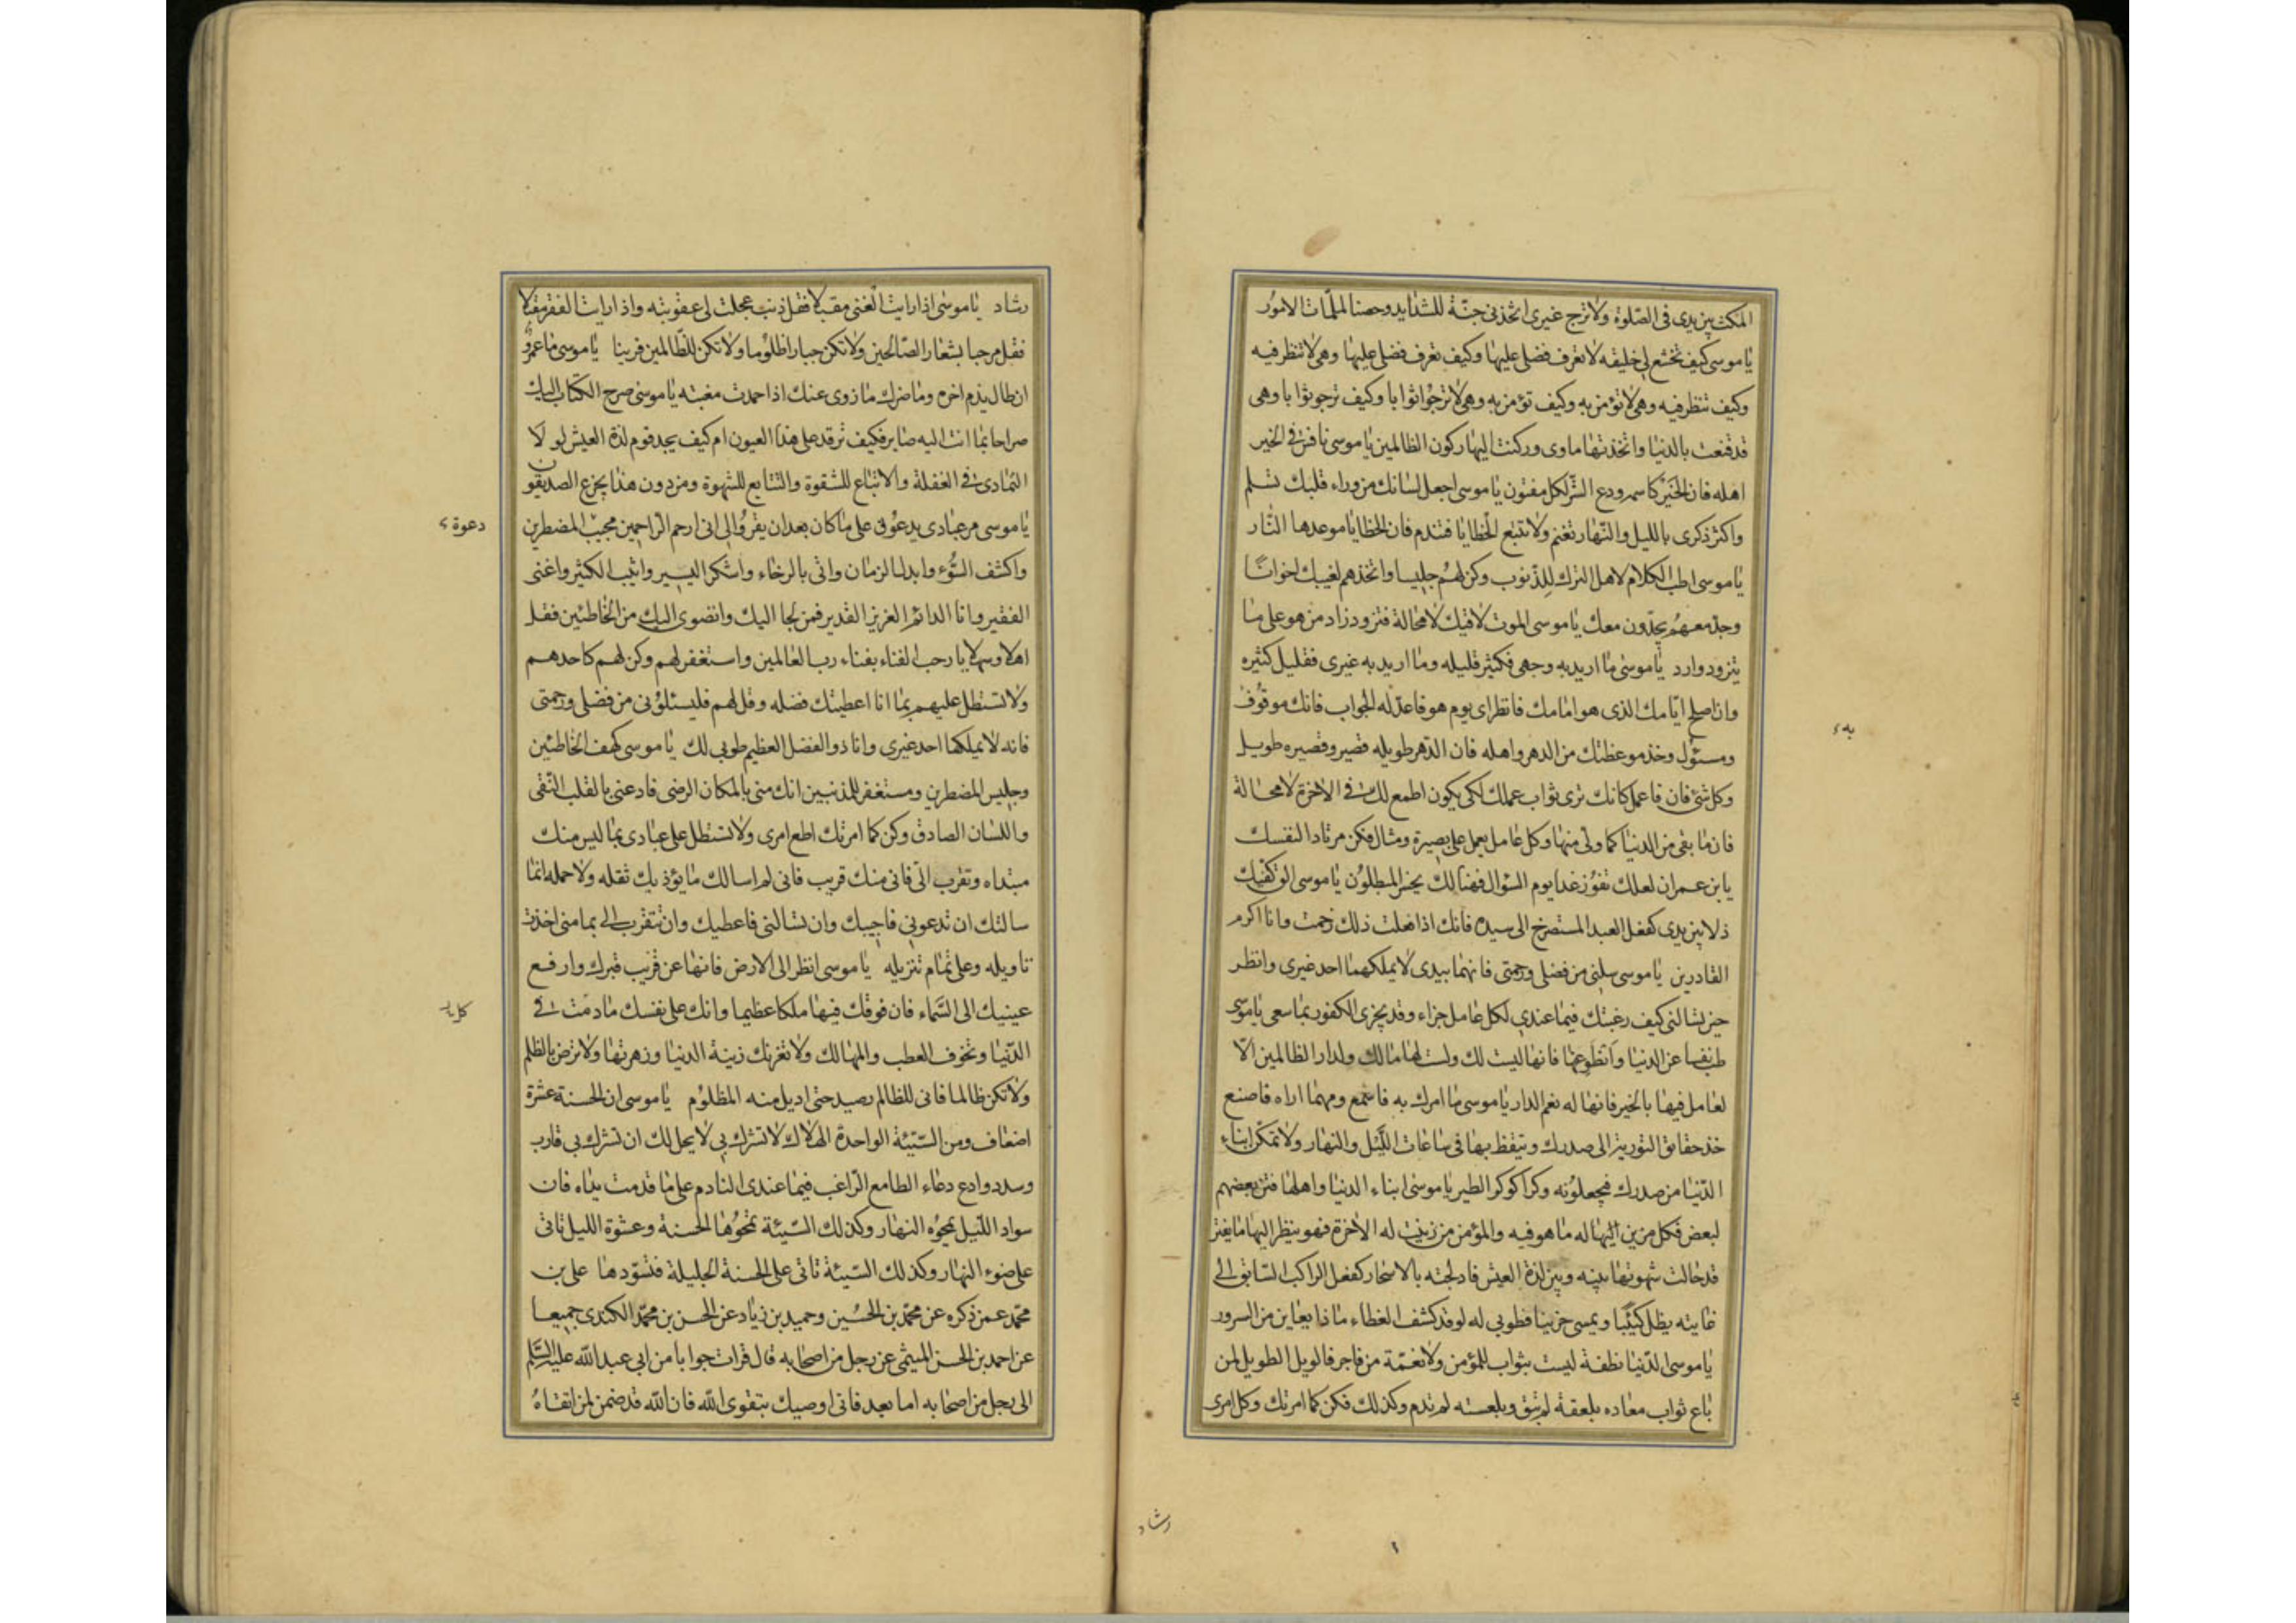 المكث بين يدى فى الصّلوة ولا ترج غيرى اتخذنى جنّة للشدايد وحصنا لملمّات الامور
يا موسى كيف تخشع لى خليقه لا تعرف فضلى عليها وكيف تعرف فضلى عليها وهى لا تنظر فيه
وكيف تنظر فيه وهى لا تؤمن به وكيف تؤمن به وهى لا ترجوا ثوابا وكيف ترجو ثوابا وهى
قد قنعت بالدنيا واتخذتها ماوى وركنت اليها ركون الظالمين يا موسى نافس فى الخير
اهله فان الخير كاسمه ودع الشّر لكل مفتون يا موسى اجعل لسانك من وراء قلبك تسلم
واكثر ذكرى بالليل والنّهار تغنم ولا تتبع الخطايا فتندم فان الخطايا موعدها النّار
يا موسى اطب الكلام لاهل الترك للذنوب وكن لهم جليسا واتخذهم لغيبك اخوانا
وجدّ معهم يجدّون معك يا موسى الموت لاقيك لا محالة فتزود زاد من هو على ما
يتزود وارد يا موسى ما اريد به وجهى فكثير قليله وما اريد به غيرى فقليل كثيره
وان اصلح ايّامك الذى هو امامك فانظر اى يوم هو فاعدّ له الجواب فانك موقوف
به
ومسئول وخذ موعظتك من الدهر واهله فان الدّهر طويله قصير وقصيره طويل
وكل شئ فان فاعمل كانك ترى ثواب عملك لكى يكون اطمع لك فى الاخرة لا محالة
فان ما بقى من الدنيا كما ولّى منها وكل عامل يعمل على بصيرة ومثال فكن مرتادا لنفسك
يا بن عمران لعلك تفوز غدا يوم السّؤال فهنالك يخسر المبطلون يا موسى الق كفّيك
ذلا بين يدى كفعل العبد المستصرخ الى سيده فانك اذا فعلت ذلك رحمت وانا اكرم
القادرين يا موسى سلنى من فضلى ورحمتى فانهما بيدى لا يملكهما احد غيرى وانظر
حين تسالنى كيف رغبتك فيما عندى لكل عامل جزاء وقد يجزى الكفور بما سعى يا موسى
طب نفسا عن الدنيا وانطو عنها فانها ليست لك ولست لها مالك ولدار الظالمين الّا
لعامل فيها بالخير فانها له نعم الدار يا موسى ما امرك به فاسمع ومهما اراه فاصنع
خذ حقايق التورية الى صدرك وتيقظ بها فى ساعات اللّيل والنهار ولا تمكن ابناء
الدّنيا من صدرك فيجعلونه وكرا كوكر الطير يا موسى ابناء الدنيا واهلها فتن بعضهم
لبعض فكل مزين اليها له ما هو فيه والمؤمن من زينت له الاخرة فهو ينظر اليها ما يفتر
قد حالت شهوتها بينه وبين لذة العيش فادلجته بالاسحار كفعل الراكب السّابق الى
غايته يظل كئيبا ويمسى حزينا فطوبى له لو قد كشف الغطاء ماذا يعاين من السرور
يا موسى الدّنيا نطفة ليست بثواب للمؤمن ولا نقمة من فاجر فالويل الطويل لمن
باع ثواب معاده بلعقة لم تبق وبلعسة لم تدم وكذلك فكن كما امرتك وكل امرى
رشاد
رشاد يا موسى اذا رايت الغنى مقبلا فقل ذنب عجلت لى عقوبته واذا رايت الفقر مقبلا
فقل مرحبا بشعار الصّالحين ولا تكن جبارا ظلوما ولا تكن للظّالمين قرينا يا موسى ما عمر و
ان طال يذم اخره وما ضرك ما زوى عنك اذا حمدت مغبته يا موسى صرح الكتاب اليك
صراحا بما انت اليه صاير فكيف ترقد على هذا العيون ام كيف يجد قوم لذة العيش لو لا
التمادى فى الغفلة والاتباع للشقوة والتتابع للشهوة ومن دون هذا يجزع الصديقون
دعوة
يا موسى مر عبادى يدعونى على ما كان بعد ان يقروا لى انى ارحم الرّاحمين مجيب المضطرين
واكشف السّوء وابدل الزمان واتى بالرخاء واشكر اليسير واثيب الكثير واغنى
الفقير وانا الدائم العزيز القدير فمن لجا اليك وانضوى اليك من الخاطئين فقل
اهلا وسهلا يا رحب الفناء بفناء رب العالمين واستغفر لهم وكن لهم كاحدهم
ولا تستطل عليهم بما انا اعطيتك فضله وقل لهم فليسئلونى من فضلى ورحمتى
فانه لا يملكها احد غيرى وانا ذو الفضل العظيم طوبى لك يا موسى كهف الخاطئين
وجليس المضطرين ومستغفر للمذنبين انك منى بالمكان الرضى فادعنى بالقلب النّقى
واللسان الصادق وكن كما امرتك اطع امرى ولا تستطل على عبادى بما ليس منك
مبتداه وتقرب الىّ فانى منك قريب فانى لم اسالك ما يؤذيك ثقله ولا حمله انما
سالتك ان تدعونى فاجيبك وان تسالنى فاعطيك وان تتقرب الى بما منى اخذت
تاويله وعلى تمام تنزيله يا موسى انظر الى الارض فانها عن قريب قبرك وارفع
عينيك الى السّماء فان فوقك فيها ملكا عظيما وابك على نفسك ما دمت فى
الدّنيا وتخوف العطب والمهالك ولا تغرنك زينة الدنيا وزهرتها ولا ترض بالظلم
ولا تكن ظالما فانى للظالم رصيد حتى اديل منه المظلوم يا موسى ان الحسنة عشرة
اضعاف ومن السّيئة الواحدة الهلاك لا تشرك بى لا يحل لك ان تشرك بى قارب
وسدد وادع دعاء الطامع الرّاغب فيما عندى النادم على ما قدمت يداه فان
سواد اللّيل يمحوه النهار وكذلك السّيئة تمحوها الحسنة وعشوة الليل تاتى
على ضوء النهار وكذلك السّيئة تاتى على الحسنة الجليلة فتسوّدها على بن
محمّد عمن ذكره عن محمّد بن الحسين وحميد بن زياد عن الحسن بن محمّد الكندى جميعا
عن احمد بن الحسن الميثمى عن رجل من اصحابه قال قرات جوابا من ابى عبد الله عليه السّلم
الى رجل من اصحابه اما بعد فانى اوصيك بتقوى الله فان الله قد ضمن لمن اتقاه